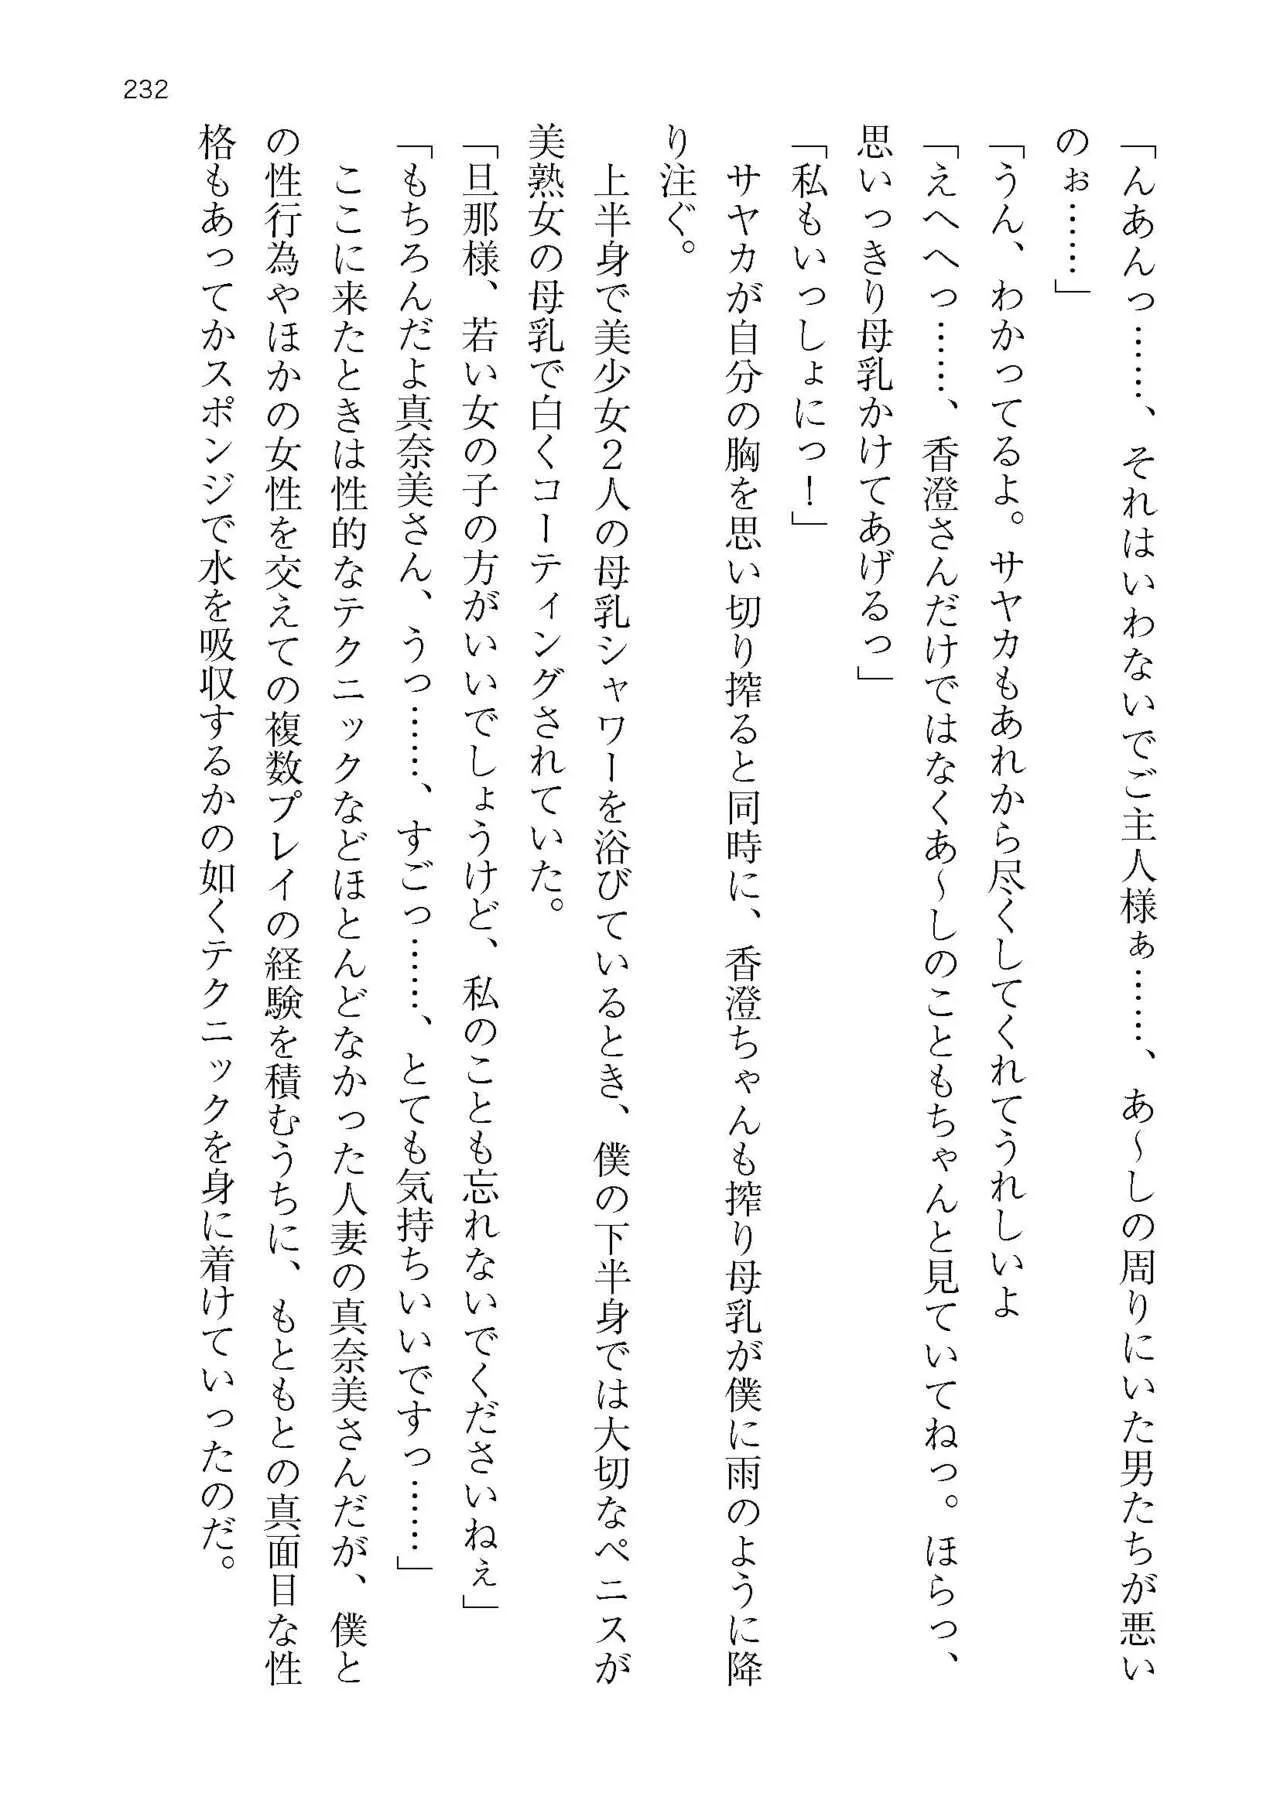 232
「んあんっ……、それはいわないでご主人様ぁ……、あ～しの周りにいた男たちが悪い
のぉ……」
「うん、わかってるよ。サヤカもあれから尽くしてくれてうれしいよ
「えへへっ……、香澄さんだけではなくあ～しのこともちゃんと見ていてねっ。ほらっ、
思いっきり母乳かけてあげるっ」
「私もいっしょにっ！」
　サヤカが自分の胸を思い切り搾ると同時に、香澄ちゃんも搾り母乳が僕に雨のように降
り注ぐ。
　上半身で美少女２人の母乳シャワーを浴びているとき、僕の下半身では大切なペニスが
美熟女の母乳で白くコーティングされていた。
「旦那様、若い女の子の方がいいでしょうけど、私のことも忘れないでくださいねぇ」
「もちろんだよ真奈美さん、うっ……、すごっ……、とても気持ちいいですっ……」
　ここに来たときは性的なテクニックなどほとんどなかった人妻の真奈美さんだが、僕と
の性行為やほかの女性を交えての複数プレイの経験を積むうちに、もともとの真面目な性
格もあってかスポンジで水を吸収するかの如くテクニックを身に着けていったのだ。